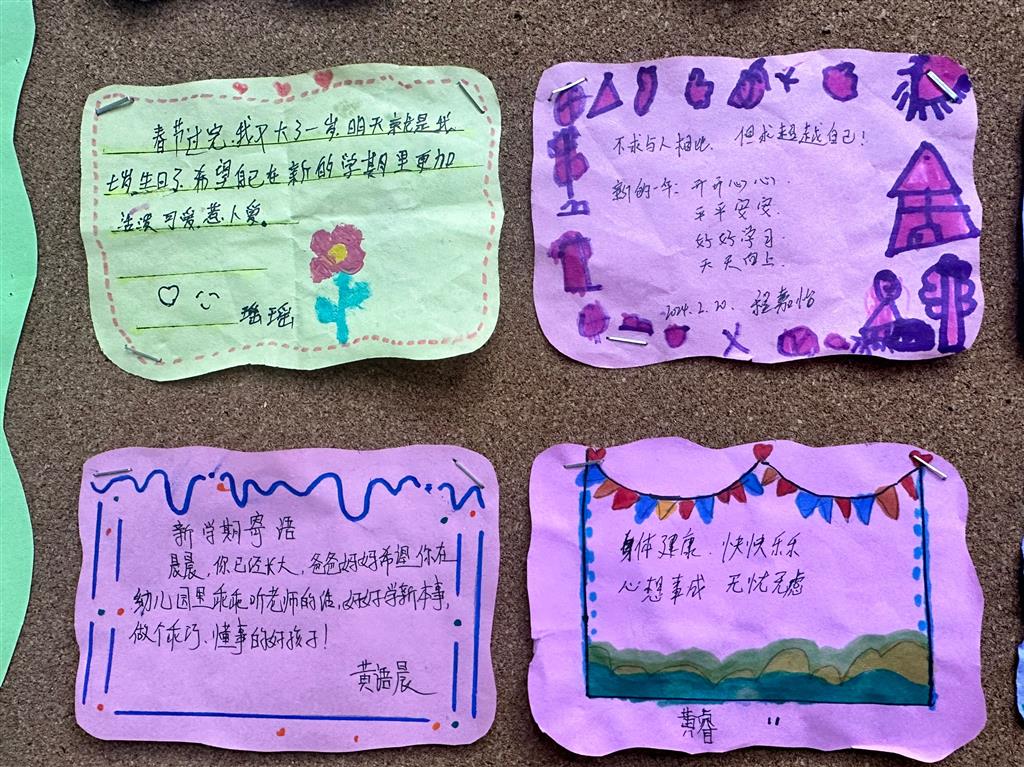 春节过完,我又大了一岁,明天就是我
七岁生日了,希望自己在新的学期里更加
活泼可爱,惹人爱。
瑶瑶
不求与人相比,但求超越自己!
新的一年:开开心心.
平平安安.
好好学习.
天天向上.
2024.2.20. 程嘉怡
新学期寄语
晨晨,你已经长大,爸爸妈妈希望你在
幼儿园里乖乖听老师的话,好好学新本事,
做个乖巧、懂事的好孩子!
黄语晨
身体健康、快快乐乐
心想事成 无忧无虑
黄睿